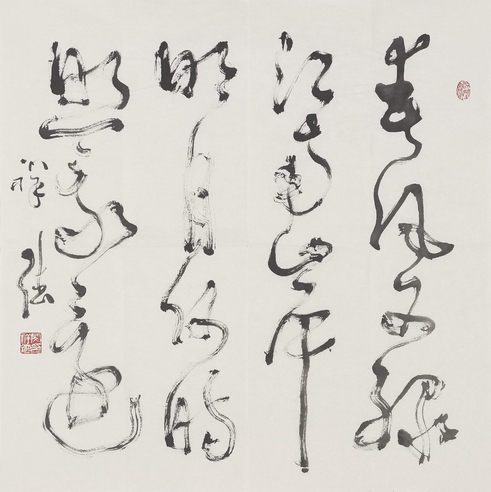 春風又綠
江南岸
明月何時
照我還